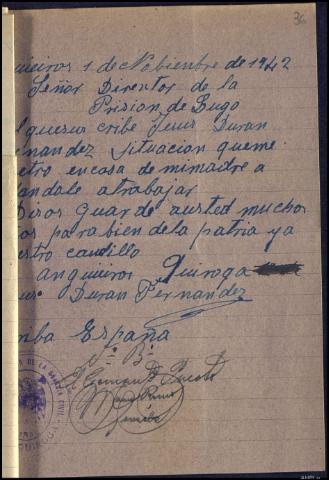 36
uieiros 1 de Nobienbre de 1942
Señor Director de la
Prision de Lugo
l que su cribe Jesus Duran
nandez situacion que me
etro en casa de mi madre a
andole a trabajar
Dios guarde a usted muchos
os para bien de la patria y a
estro caudillo
anguieiros Quiroga
Duran Fernandez
rriba España
Vº Bº